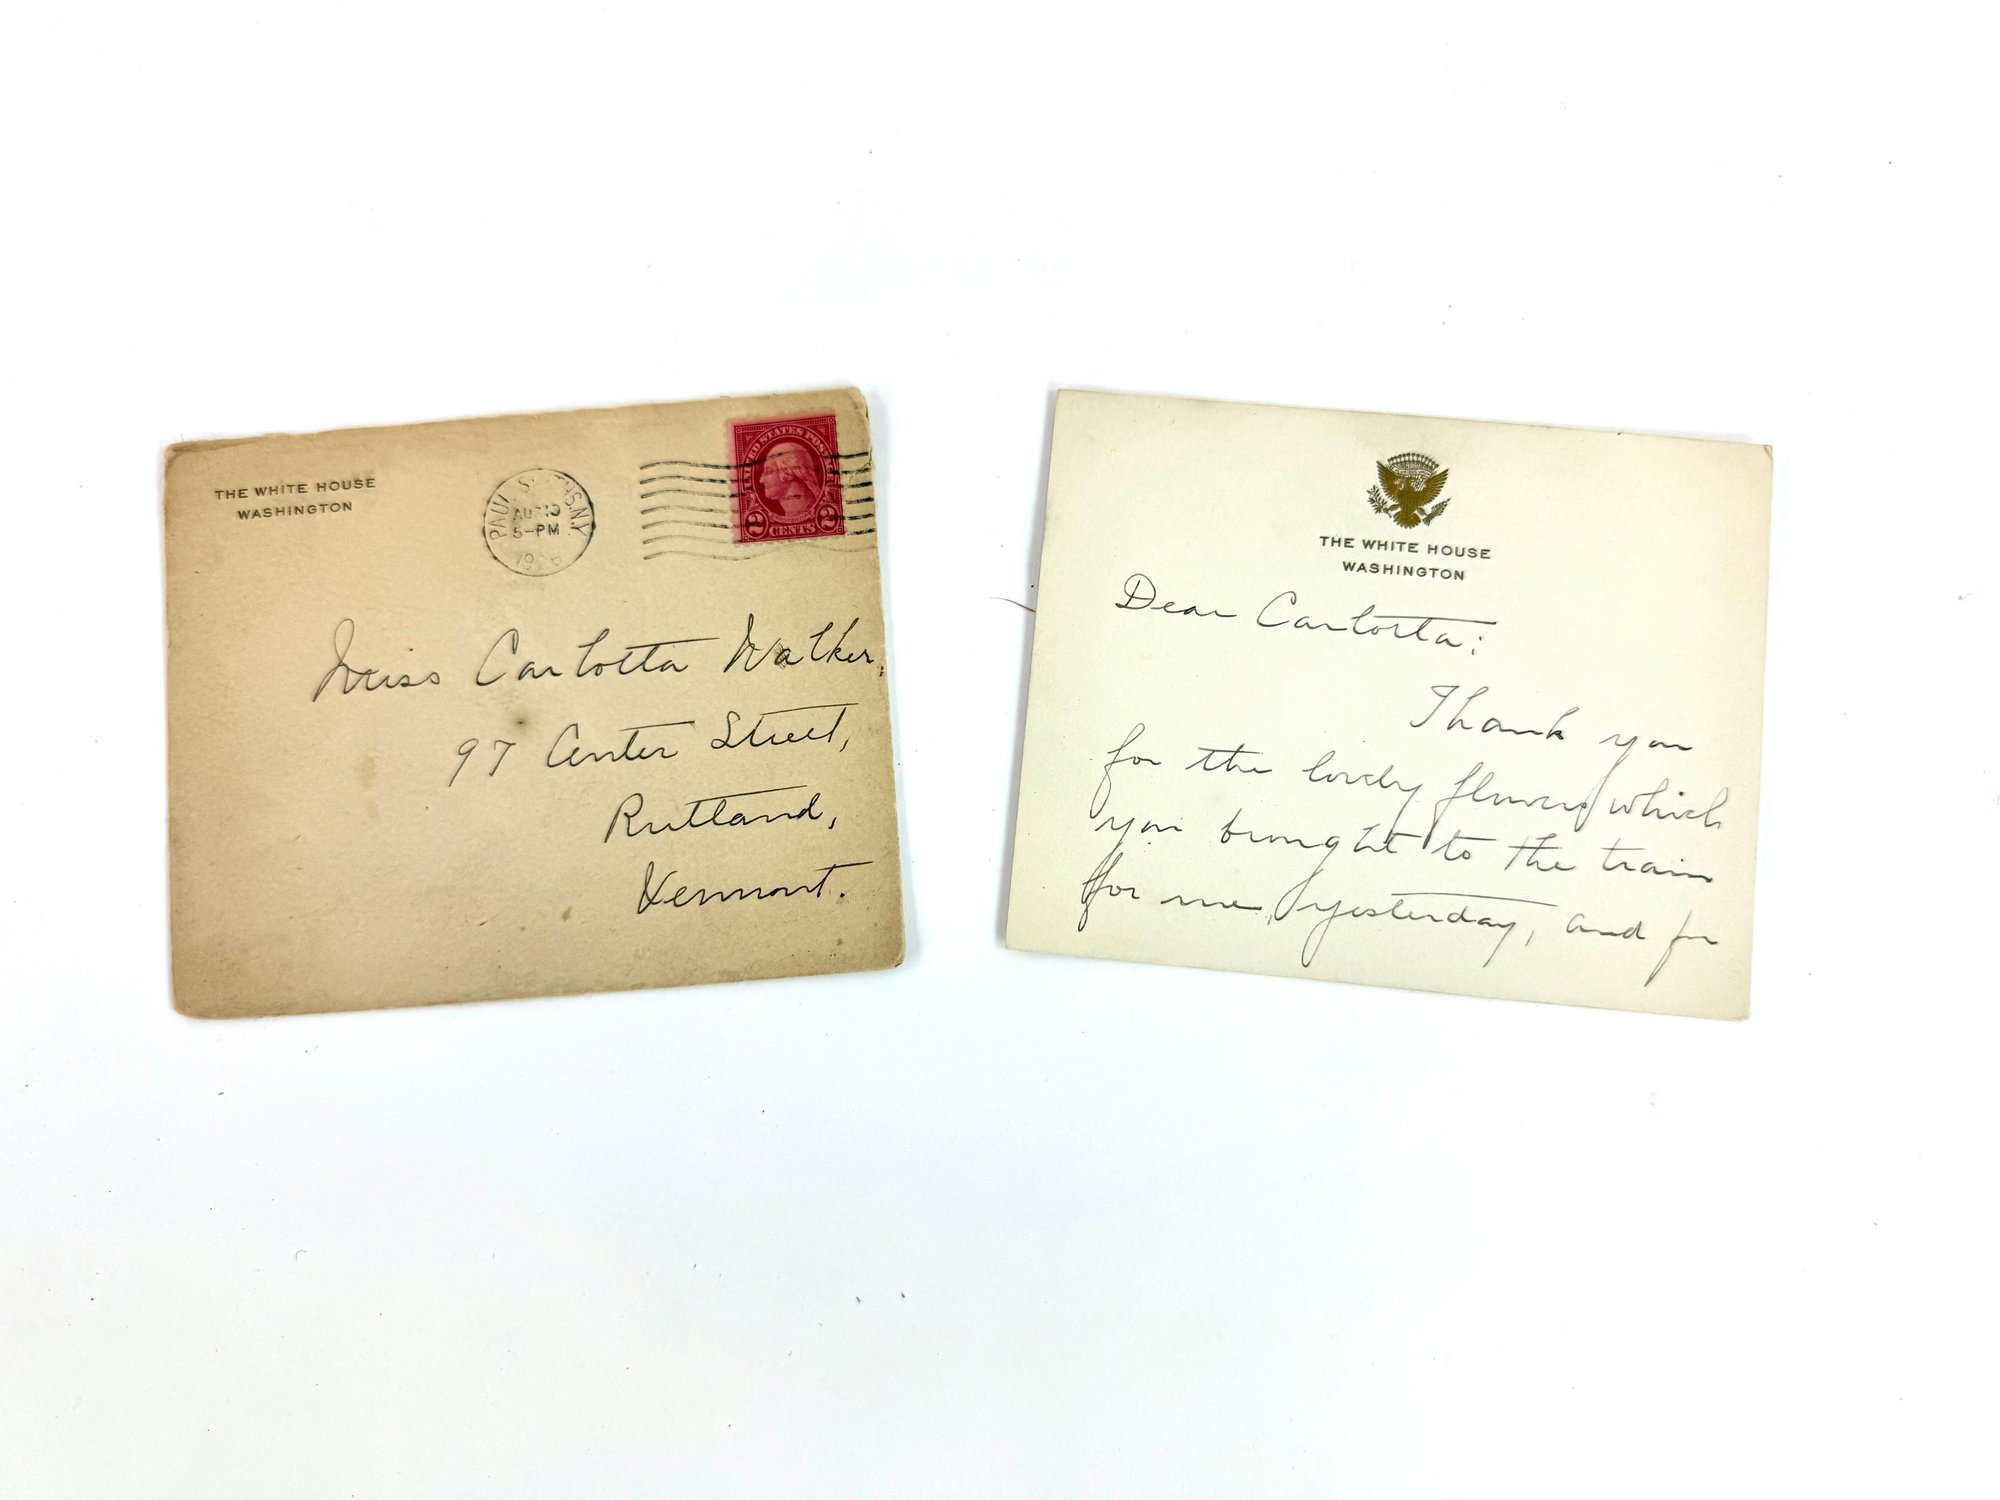 THE WHITE HOUSE
WASHINGTON
PAUL SMITHS, N.Y.
AUG 10
5-PM
1926
UNITED STATES POSTAGE
2 CENTS 2
Miss Carlotta Walker,
97 Center Street,
Rutland,
Vermont.
THE WHITE HOUSE
WASHINGTON
Dear Carlotta:
Thank you
for the lovely flowers which
you brought to the train
for me, yesterday, and for